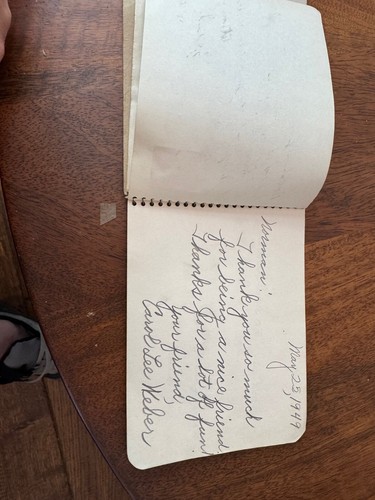 May 23, 1949
Norman!
Thank you so much
for being a nice friend
thanks for a lot of fun!
Your friend,
Carol Lee Weber